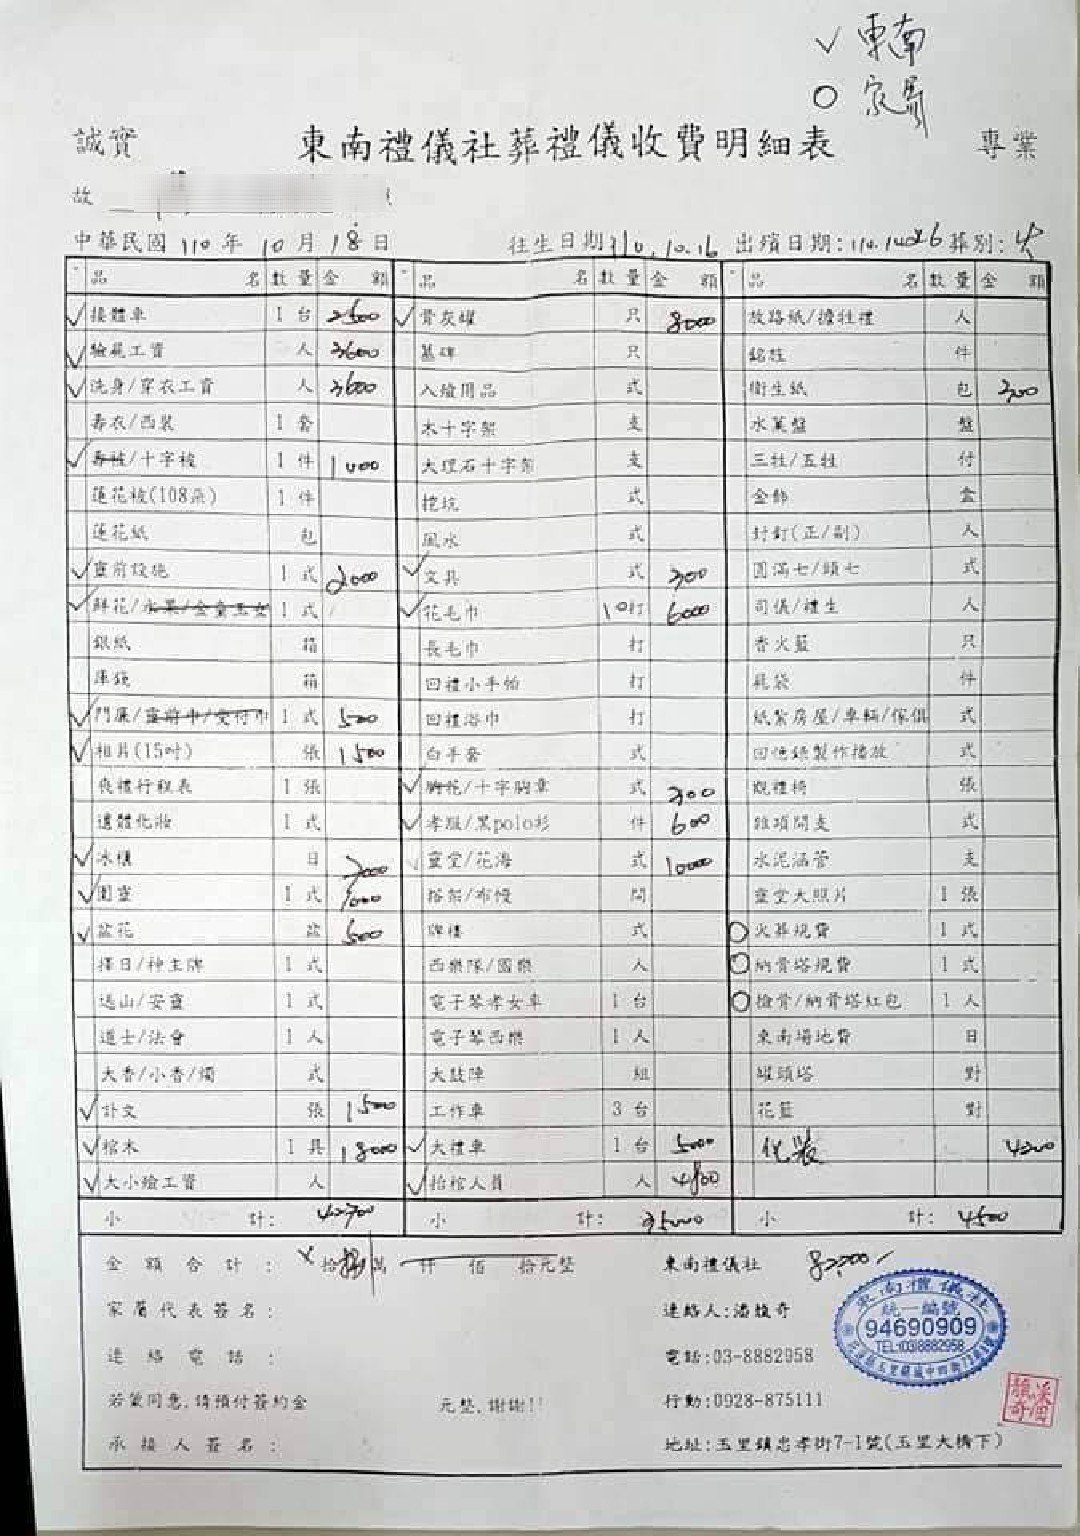 ✓ 東南
○ 家屬
誠實 東南禮儀社葬禮儀收費明細表 專業
故
中華民國 110 年 10 月 18 日 往生日期 110.10.16 出殯日期: 葬別: 火
品 名 數量 金 額 品 名 數量 金 額 品 名 數量 金 額
✓ 接體車 1 台 2500 ✓ 骨灰罐 只 8000 放路紙/擔牲禮 人
✓ 驗屍工資 人 3600 墓碑 只 銘旌 件
✓ 洗身/穿衣工資 人 3600 入殮用品 式 衛生紙 包 300
壽衣/西裝 1 套 木十字架 支 水菓盤 盤
✓ 壽被/十字被 1 件 1000 大理石十字架 支 三牲/五牲 付
蓮花被(108朵) 1 件 挖坑 式 金飾 盒
蓮花紙 包 風水 式 封釘(正/副) 人
✓ 靈前設施 1 式 2000 ✓ 文具 式 300 圓滿七/頭七 式
✓ 鮮花/水果/金童玉女 1 式 ✓ 花毛巾 10 打 6000 司儀/禮生 人
銀紙 箱 長毛巾 打 香火籃 只
庫錢 箱 回禮小手帕 打 屍袋 件
✓ 門簾/靈前巾/交付巾 1 式 500 回禮浴巾 打 紙紮房屋/車輛/傢俱 式
✓ 相片(15吋) 張 1500 白手套 式 回憶錄製作播放 式
喪禮行程表 1 張 ✓ 胸花/十字胸章 式 300 觀禮椅 張
遺體化妝 1 式 ✓ 孝服/黑polo衫 件 600 雜項開支 式
✓ 冰櫃 日 7000 ✓ 靈堂/花海 式 10000 水泥涵管 支
✓ 圍靈 1 式 搭架/布幔 間 靈堂大照片 1 張
✓ 盆花 盆 500 牌樓 式 ○ 火葬規費 1 式
擇日/神主牌 1 式 西樂隊/國樂 人 ○ 納骨塔規費 1 式
過山/安靈 1 式 電子琴孝女車 1 台 ○ 撿骨/納骨塔紅包 1 人
道士/法會 1 人 電子琴西樂 1 人 東南場地費 日
大香/小香/燭 式 大鼓陣 組 罐頭塔 對
✓ 訃文 張 1500 工作車 3 台 花籃 對
✓ 棺木 1 具 18000 ✓ 大禮車 1 台 5000 化妝 4200
✓ 大小殮工資 人 ✓ 抬棺人員 人 4800
小 計: 42700 小 計: 35000 小 計: 4500
金 額 合 計 : 拾 萬 仟 佰 拾元整 東南禮儀社 82,000
家屬代表簽名: 連絡人:潘馥奇
連 絡 電 話 : 電話:03-8882958
若蒙同意,請預付簽約金 元整,謝謝!! 行動:0928-875111
承接人簽名: 地址:玉里鎮忠孝街7-1號(玉里大橋下)
東南禮儀社
統一編號
94690909
TEL:(03)8882958